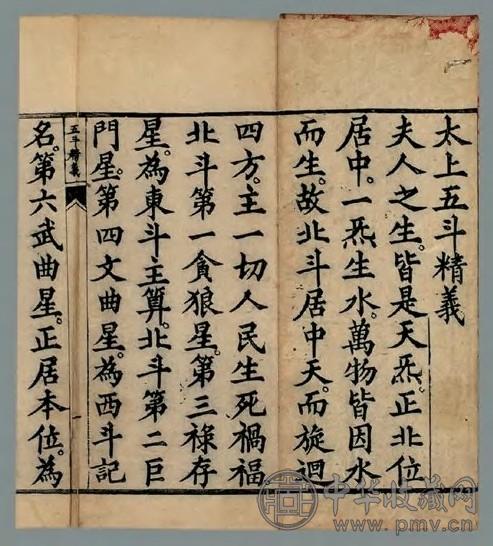 太上五斗精義
夫人之生。皆是天炁。正北位
居中。一炁生水。萬物皆因水
而生。故北斗居中天。而旋迴
四方。主一切人民生死禍福
北斗第一貪狼星。第三祿存
星。為東斗主算。北斗第二巨
門星。第四文曲星。為西斗記
五斗精義
一
名。第六武曲星。正居本位。為
中华收藏网
www.pmv.cn